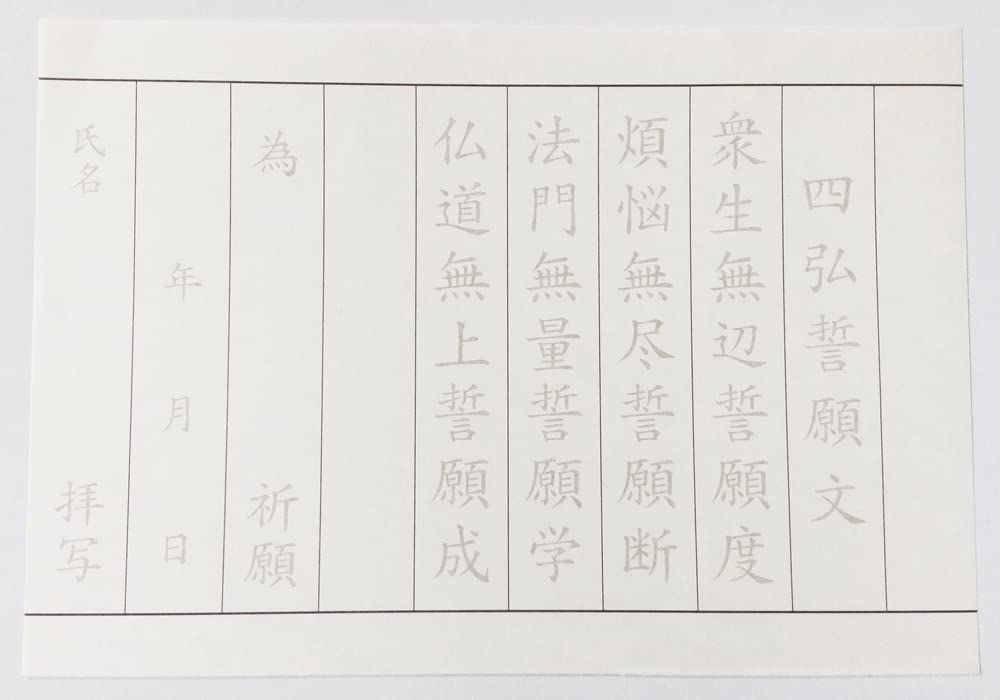 四弘誓願文
衆生無辺誓願度
煩悩無尽誓願断
法門無量誓願学
仏道無上誓願成
為 祈願
年 月 日
氏名 拝写